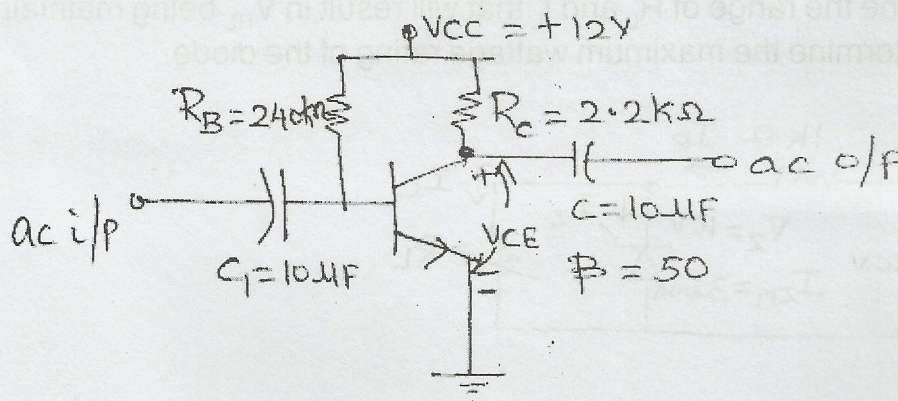 VCC = +12V
RB = 240kΩ
RC = 2.2kΩ
ac o/p
C = 10µF
ac i/p
VCE
C1 = 10µF
β = 50